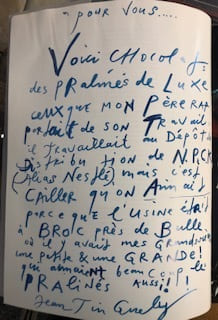 pour vous.....
Voici CHOCOLATS
des PRalinés de LUXe
ceux que MON PÈRE RAP
portait de SON TRavail
il travaillait au DÉPÔT
DISTRIBUTION de N.P.CK
(Alias Nestlé) mais c'est
CAILLER qu'ON Aimait
parce que l'USINE était
à BROC PRÈS de Bulle
où il y avait mes GRANDS
une petite & une GRANDE!
qui aimaient beaucoup le
PRALINÉS AUSSi!!
Jean Tinguely